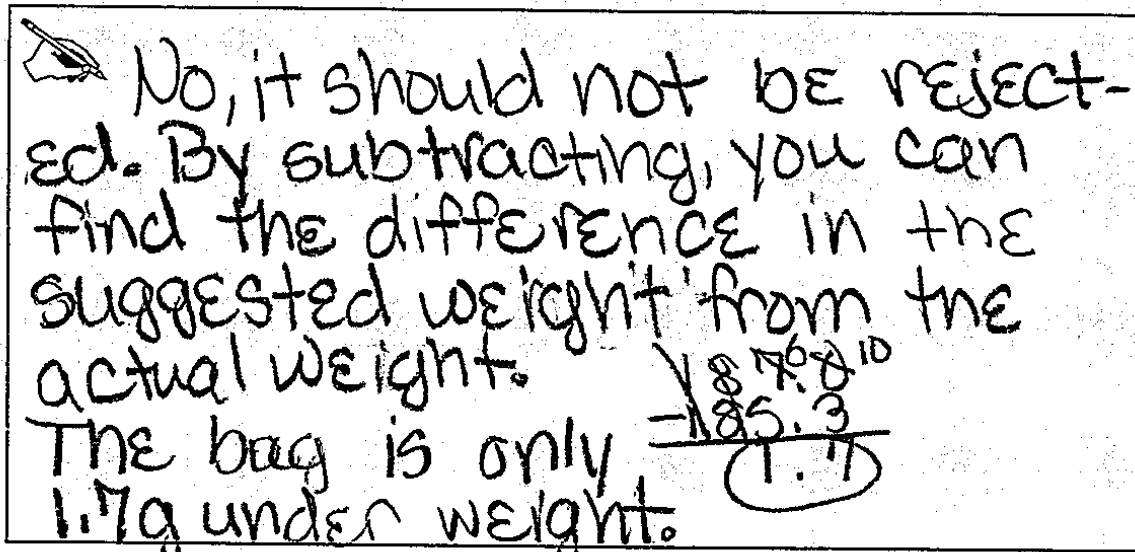 No, it should not be reject-
ed. By subtracting, you can
find the difference in the
suggested weight from the
actual weight.
187.0
6 10
-185.3
1.7
The bag is only
1.7g under weight.